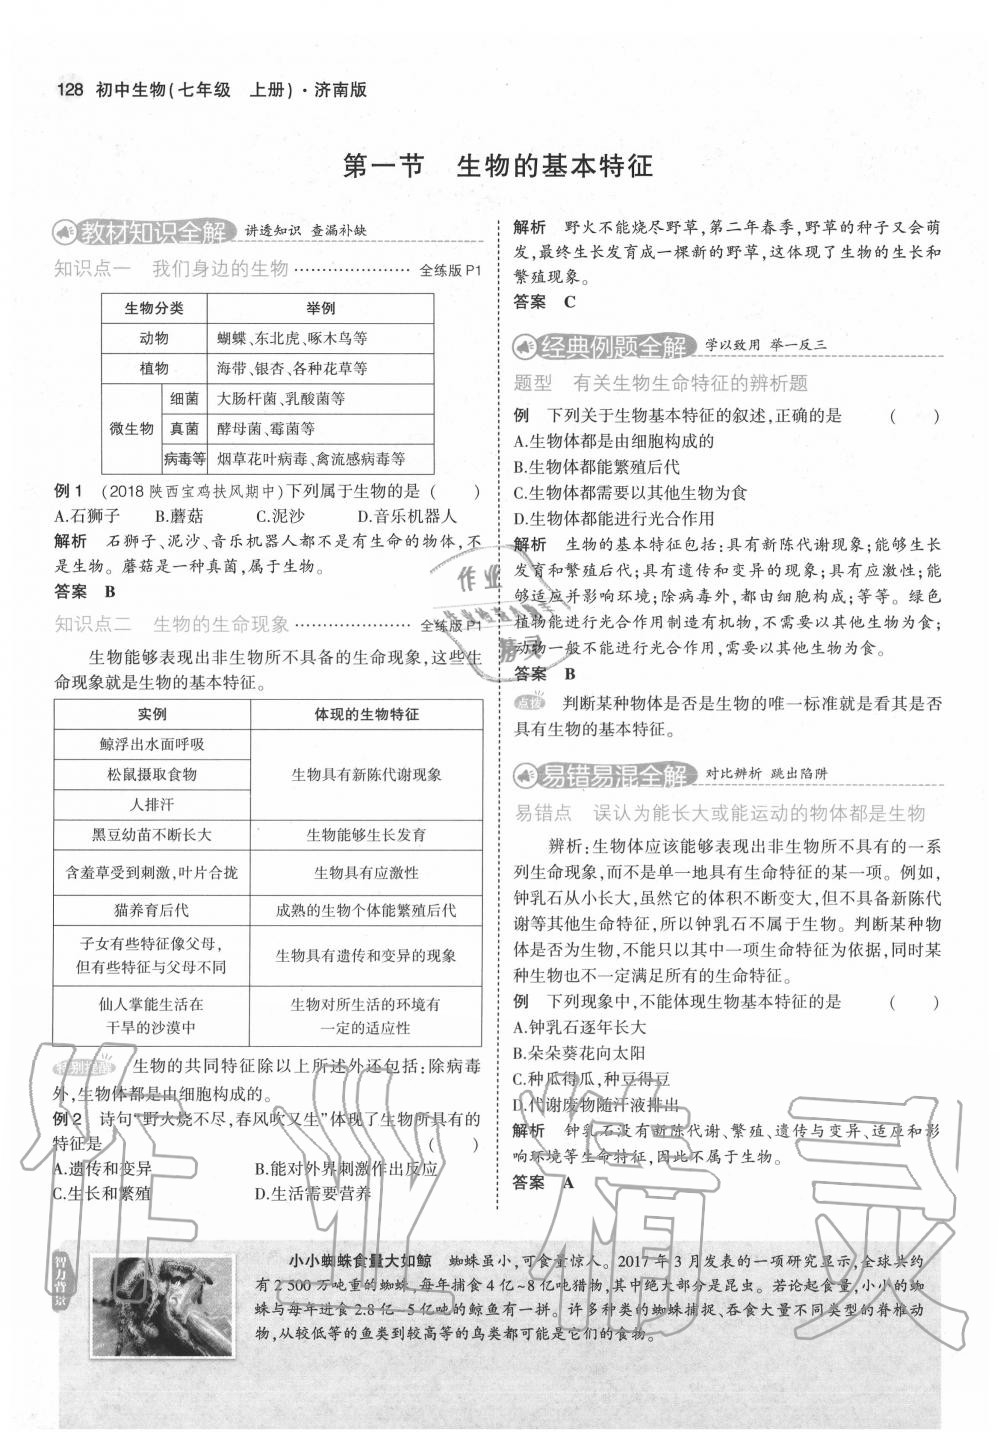 128 初中生物(七年级 上册)·济南版
第一节 生物的基本特征
教材知识全解 讲透知识 查漏补缺
知识点一 我们身边的生物 ………………… 全练版 P1
生物分类 举例
动物 蝴蝶、东北虎、啄木鸟等
植物 海带、银杏、各种花草等
微生物 细菌 大肠杆菌、乳酸菌等
真菌 酵母菌、霉菌等
病毒等 烟草花叶病毒、禽流感病毒等
例 1 (2018 陕西宝鸡扶风期中)下列属于生物的是 ( )
A.石狮子 B.蘑菇 C.泥沙 D.音乐机器人
解析 石狮子、泥沙、音乐机器人都不是有生命的物体,不
是生物。蘑菇是一种真菌,属于生物。
答案 B
知识点二 生物的生命现象 ………………… 全练版 P1
生物能够表现出非生物所不具备的生命现象,这些生
命现象就是生物的基本特征。
实例 体现的生物特征
鲸浮出水面呼吸
松鼠摄取食物 生物具有新陈代谢现象
人排汗
黑豆幼苗不断长大 生物能够生长发育
含羞草受到刺激,叶片合拢 生物具有应激性
猫养育后代 成熟的生物个体能繁殖后代
子女有些特征像父母,
但有些特征与父母不同 生物具有遗传和变异的现象
仙人掌能生活在
干旱的沙漠中 生物对所生活的环境有
一定的适应性
特别提醒 生物的共同特征除以上所述外还包括:除病毒
外,生物体都是由细胞构成的。
例 2 诗句“野火烧不尽,春风吹又生”体现了生物所具有的
特征是 ( )
A.遗传和变异 B.能对外界刺激作出反应
C.生长和繁殖 D.生活需要营养
解析 野火不能烧尽野草,第二年春季,野草的种子又会萌
发,最终生长发育成一棵新的野草,这体现了生物的生长和
繁殖现象。
答案 C
经典例题全解 学以致用 举一反三
题型 有关生物生命特征的辨析题
例 下列关于生物基本特征的叙述,正确的是 ( )
A.生物体都是由细胞构成的
B.生物体都能繁殖后代
C.生物体都需要以其他生物为食
D.生物体都能进行光合作用
解析 生物的基本特征包括:具有新陈代谢现象;能够生长
发育和繁殖后代;具有遗传和变异的现象;具有应激性;能
够适应并影响环境;除病毒外,都由细胞构成;等等。绿色
植物能进行光合作用制造有机物,不需要以其他生物为食;
动物一般不能进行光合作用,需要以其他生物为食。
答案 B
点拨 判断某种物体是否是生物的唯一标准就是看其是否
具有生物的基本特征。
易错易混全解 对比辨析 跳出陷阱
易错点 误认为能长大或能运动的物体都是生物
辨析:生物体应该能够表现出非生物所不具有的一系
列生命现象,而不是单一地具有生命特征的某一项。例如,
钟乳石从小长大,虽然它的体积不断变大,但不具备新陈代
谢等其他生命特征,所以钟乳石不属于生物。判断某种物
体是否为生物,不能只以其中一项生命特征为依据,同时某
种生物也不一定满足所有的生命特征。
例 下列现象中,不能体现生物基本特征的是 ( )
A.钟乳石逐年长大
B.朵朵葵花向太阳
C.种瓜得瓜,种豆得豆
D.代谢废物随汗液排出
解析 钟乳石没有新陈代谢、繁殖、遗传与变异、适应和影
响环境等生命特征,因此不属于生物。
答案 A
智力背景
小小蜘蛛食量大如鲸 蜘蛛虽小,可食量惊人。2017 年 3 月发表的一项研究显示,全球共约
有 2 500 万吨重的蜘蛛,每年捕食 4 亿~8 亿吨猎物,其中绝大部分是昆虫。若论起食量,小小的蜘
蛛与每年进食 2.8 亿~5 亿吨的鲸鱼有一拼。许多种类的蜘蛛捕捉、吞食大量不同类型的脊椎动
物,从较低等的鱼类到较高等的鸟类都可能是它们的食物。
作业精灵